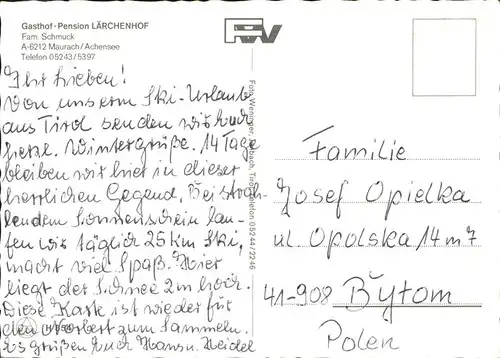 Gasthof-Pension LÄRCHENHOF
Fam. Schmuck
A-6212 Maurach/Achensee
Telefon 05243/5397
Ihr Lieben!
Von unserm Ski-Urlaub
aus Tirol senden wir Euch
herzl. Wintergrüße. 14 Tage
bleiben wir hier in dieser
herrlichen Gegend. Bei strah-
lendem Sonnenschein lau-
fen wir täglich 25 km Ski,
macht viel Spaß. Hier
liegt der Schnee 2 m hoch.
Diese Karte ist wieder für
den Norbert zum Sammeln.
Es grüßen Euch Hans u. Heidel
Tirol, Telefon 05244/2246
Familie
Josef Opielka
ul. Opolska 14 m 7
41-908 Bytom
Polen